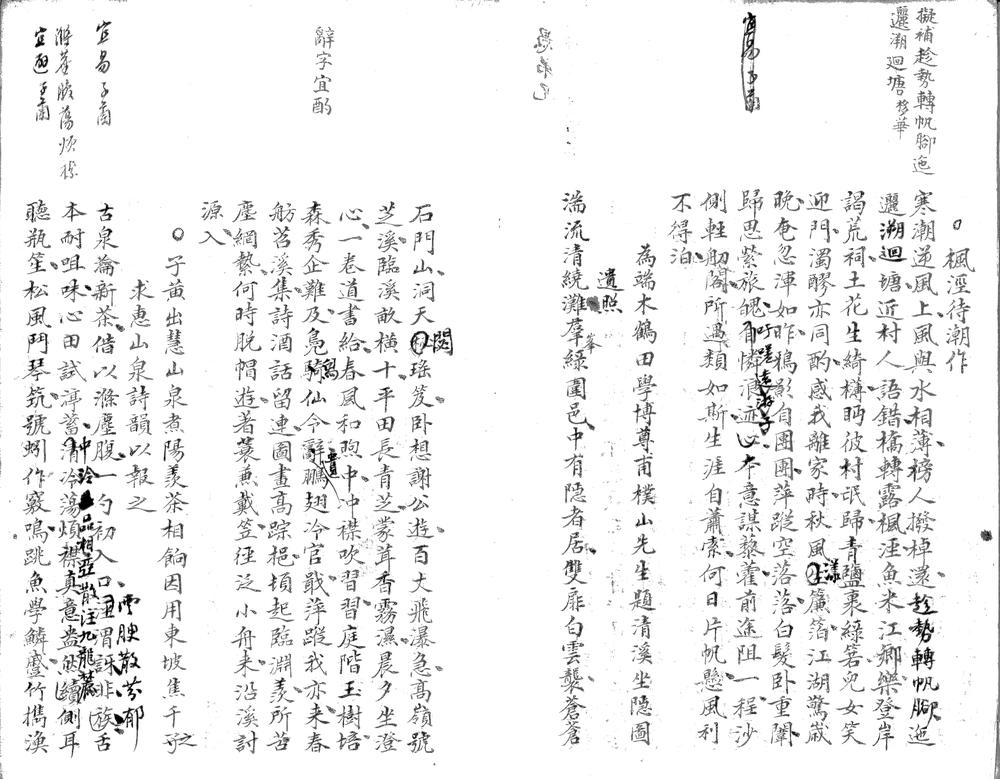 擬補趁勢轉帆腳迤
邐溯迴塘 榜華
楓涇待潮作
寒潮逆風上風與水相薄榜人撥棹還趁勢轉帆腳迤
邐溯迴塘近村人語錯橋轉露楓涇魚米江鄉樂登岸
謁荒祠土花生綺構眄彼村氓歸青鹽裹綠箬兒女笑
迎門濁醪亦同酌感我離家時秋風漾簾箔江湖驚歲
晚奄忽渾如昨鴉影自團團萍蹤空落落白髮卧重闈
歸思縈旅魄有憐浪迹心本意謀藜藿前途阻一程沙
吁嗟遠游子
側輕舠閣所遇類如斯生涯自蕭索何日片帆懸風利
不得泊
宜易子菌
為端木鶴田學博尊甫樸山先生題清溪坐隱圖
遺照
湍流清繞灘羣綠圍邑中有隱者居雙扉白雲襲蒼蒼
峯
石門山洞天閟瑤笈卧想謝公遊百丈飛瀑急高嶺號
芝溪臨溪畝橫十平田長青芝蒙茸香霧濕晨夕坐澄
心一卷道書給春風和煦中沖襟吹習習庭階玉樹培
森秀企難及鳧騎仙令辭鵬翅冷官戢萍蹤我亦來春
舫苕溪集詩酒話留連圖畫高踪挹頃起臨淵羨所苦
塵網縶何時脫帽遊著蓑兼戴笠徑泛小舟來沿溪討
源入
辭字宜酌
子黃出慧山泉煮陽羨茶相餉因用東坡焦千之
求惠山泉詩韻以報之
古泉瀹新茶借以滌塵腹一勺初入口謂訝非族舌
雲腴散芬郁
本耐咀味心田試渟蓄清泠蕩煩襟真意盎然續側耳
中泠品相亞散注九龍麓
聽瓶笙松風鬥琴筑號蚓作竅鳴跳魚學鱗蹙竹擕渙
宜易子菌